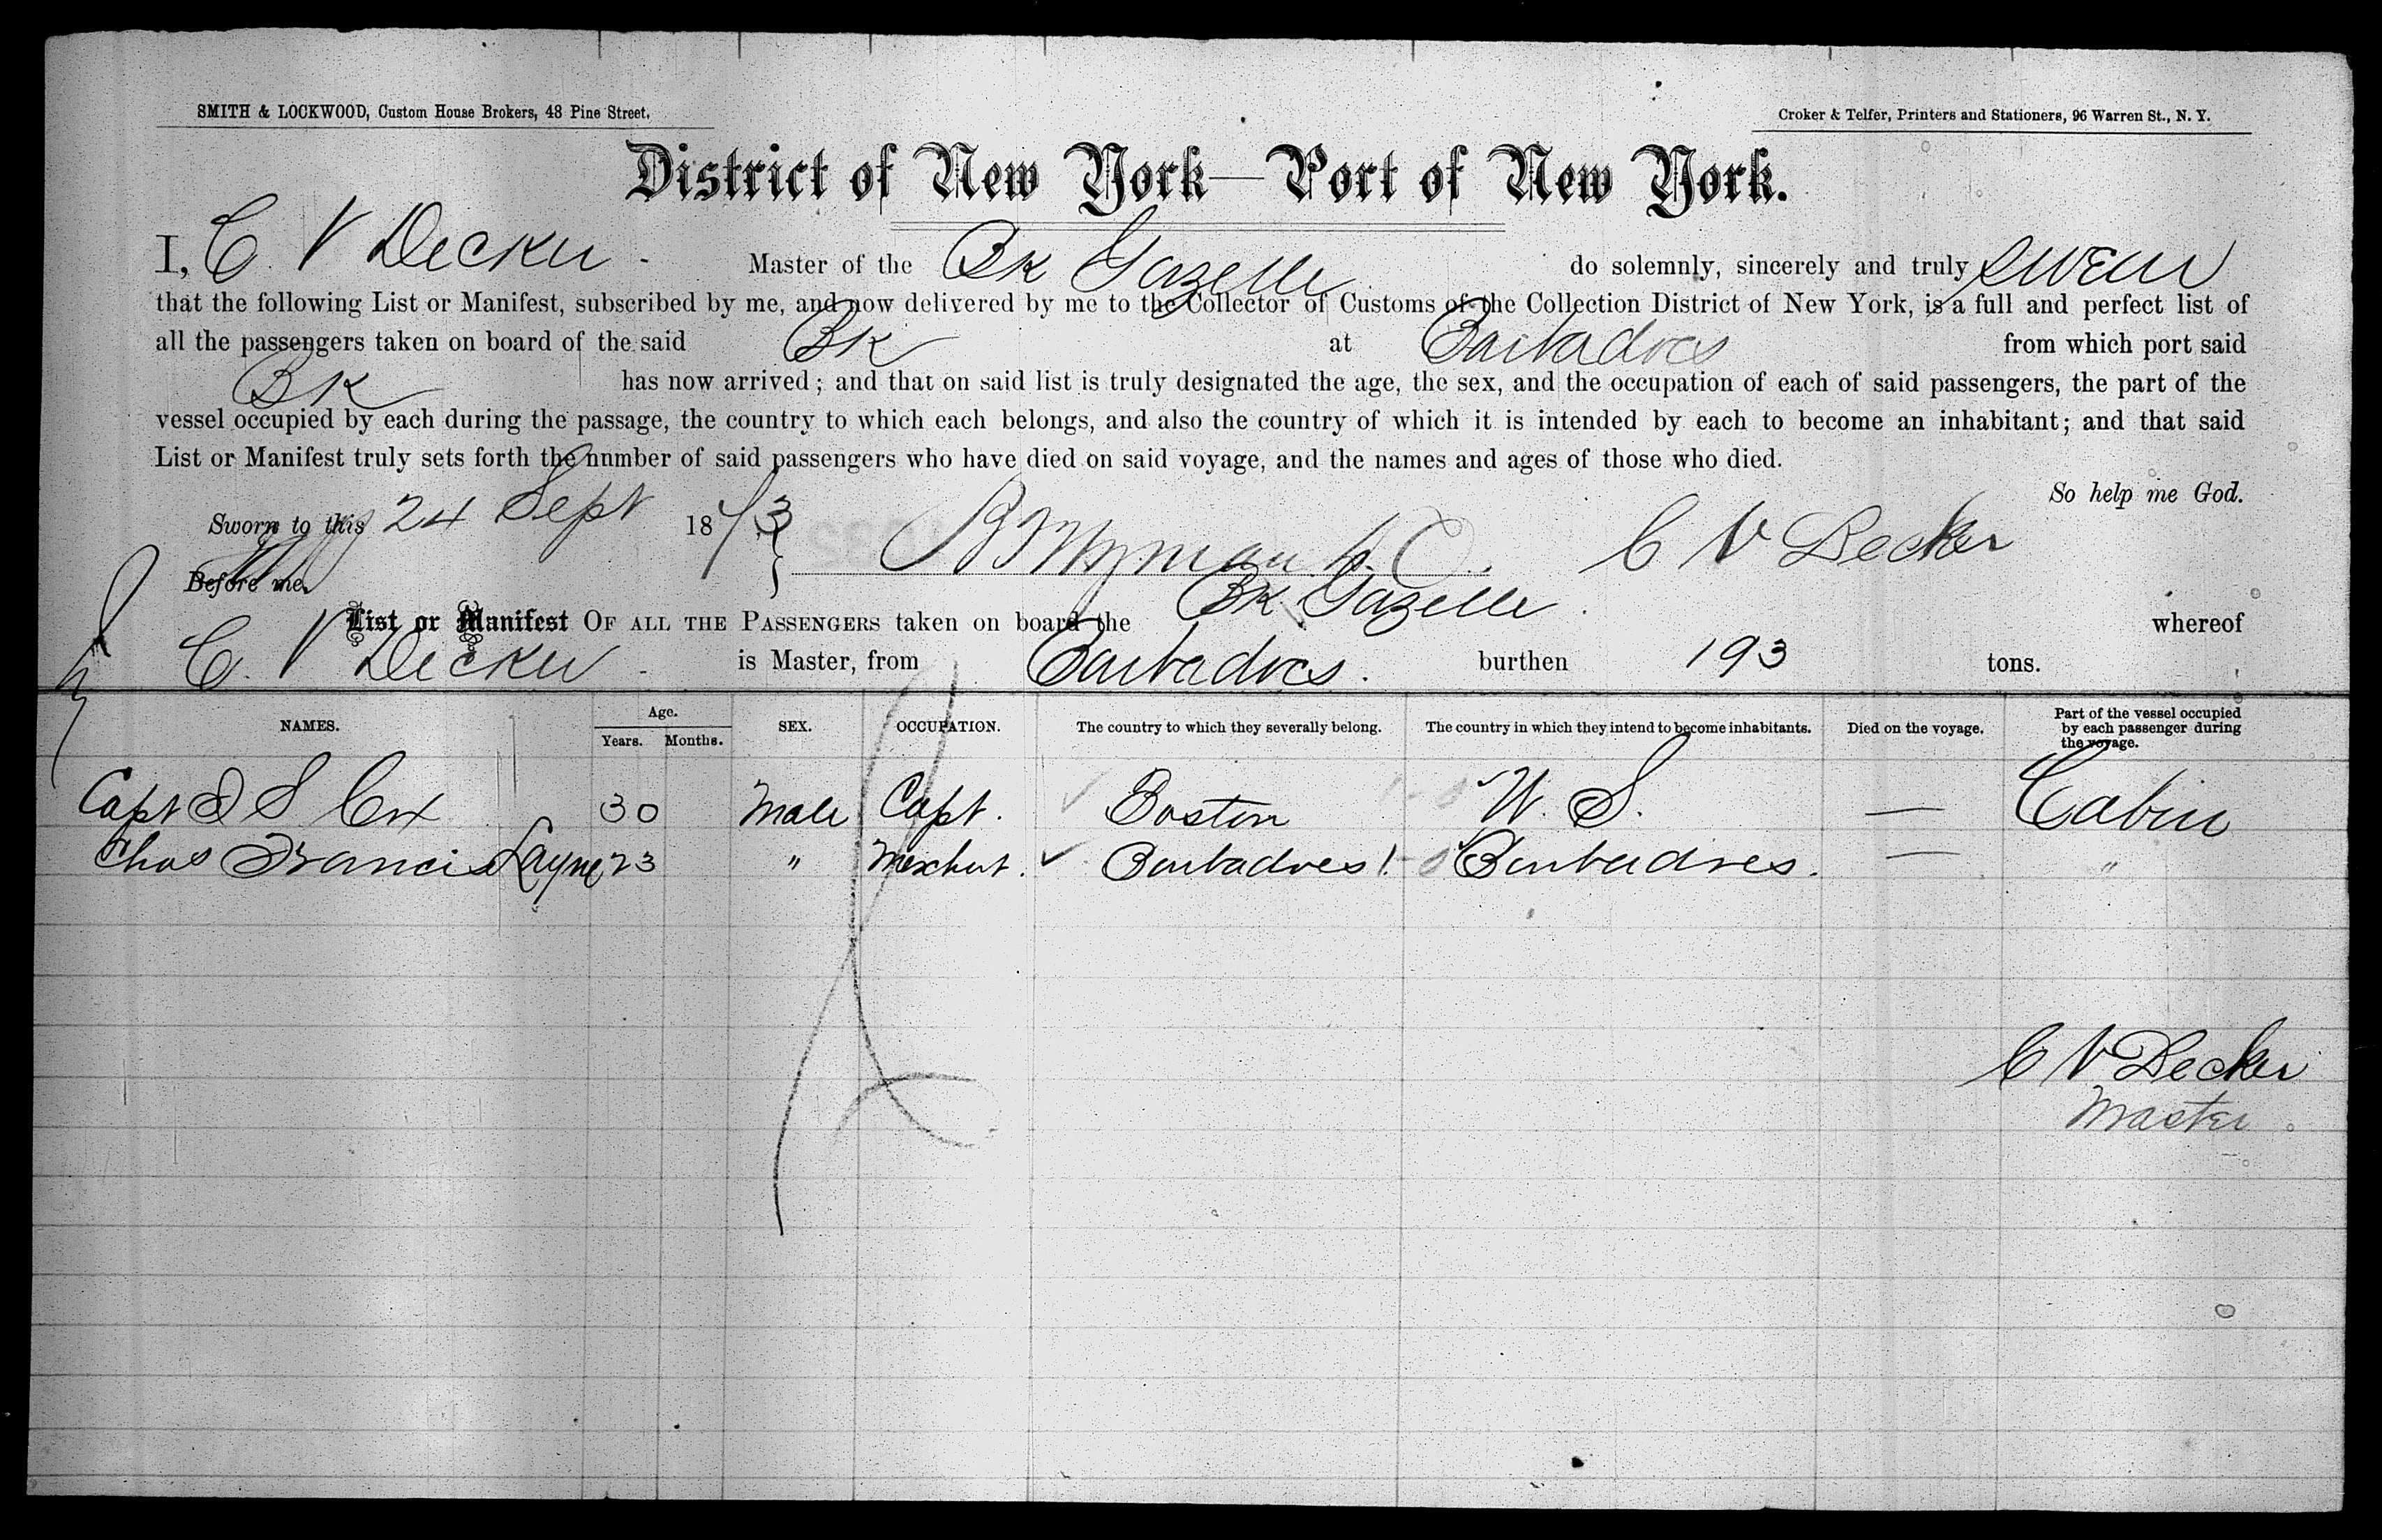 SMITH & LOCKWOOD, Custom House Brokers, 48 Pine Street.
Croker & Telfer, Printers and Stationers, 96 Warren St., N. Y.
District of New York—Port of New York.
I, C. V Decker Master of the Bk Gazelle do solemnly, sincerely and truly swear
that the following List or Manifest, subscribed by me, and now delivered by me to the Collector of Customs of the Collection District of New York, is a full and perfect list of
all the passengers taken on board of the said Bk at Barbadoes from which port said
Bk has now arrived; and that on said list is truly designated the age, the sex, and the occupation of each of said passengers, the part of the
vessel occupied by each during the passage, the country to which each belongs, and also the country of which it is intended by each to become an inhabitant; and that said
List or Manifest truly sets forth the nnmber of said passengers who have died on said voyage, and the names and ages of those who died.
So help me God.
Sworn to this 24 Sept 1873 C V Decker
Before me.
List or Manifest OF ALL THE PASSENGERS taken on board the Bk Gazelle whereof
C. V Decker is Master, from Barbadoes. burthen 193 tons.
NAMES. Age. Years. Months. SEX. OCCUPATION. The country to which they severally belong. The country in which they intend to become inhabitants. Died on the voyage. Part of the vessel occupied by each passenger during the voyage.
Capt S Cox 30 Male Capt. Boston U. S. — Cabin
Chas Francis Layne 23 " Merchnt. Barbadoes Barbadoes. — "
C V Decker
Master